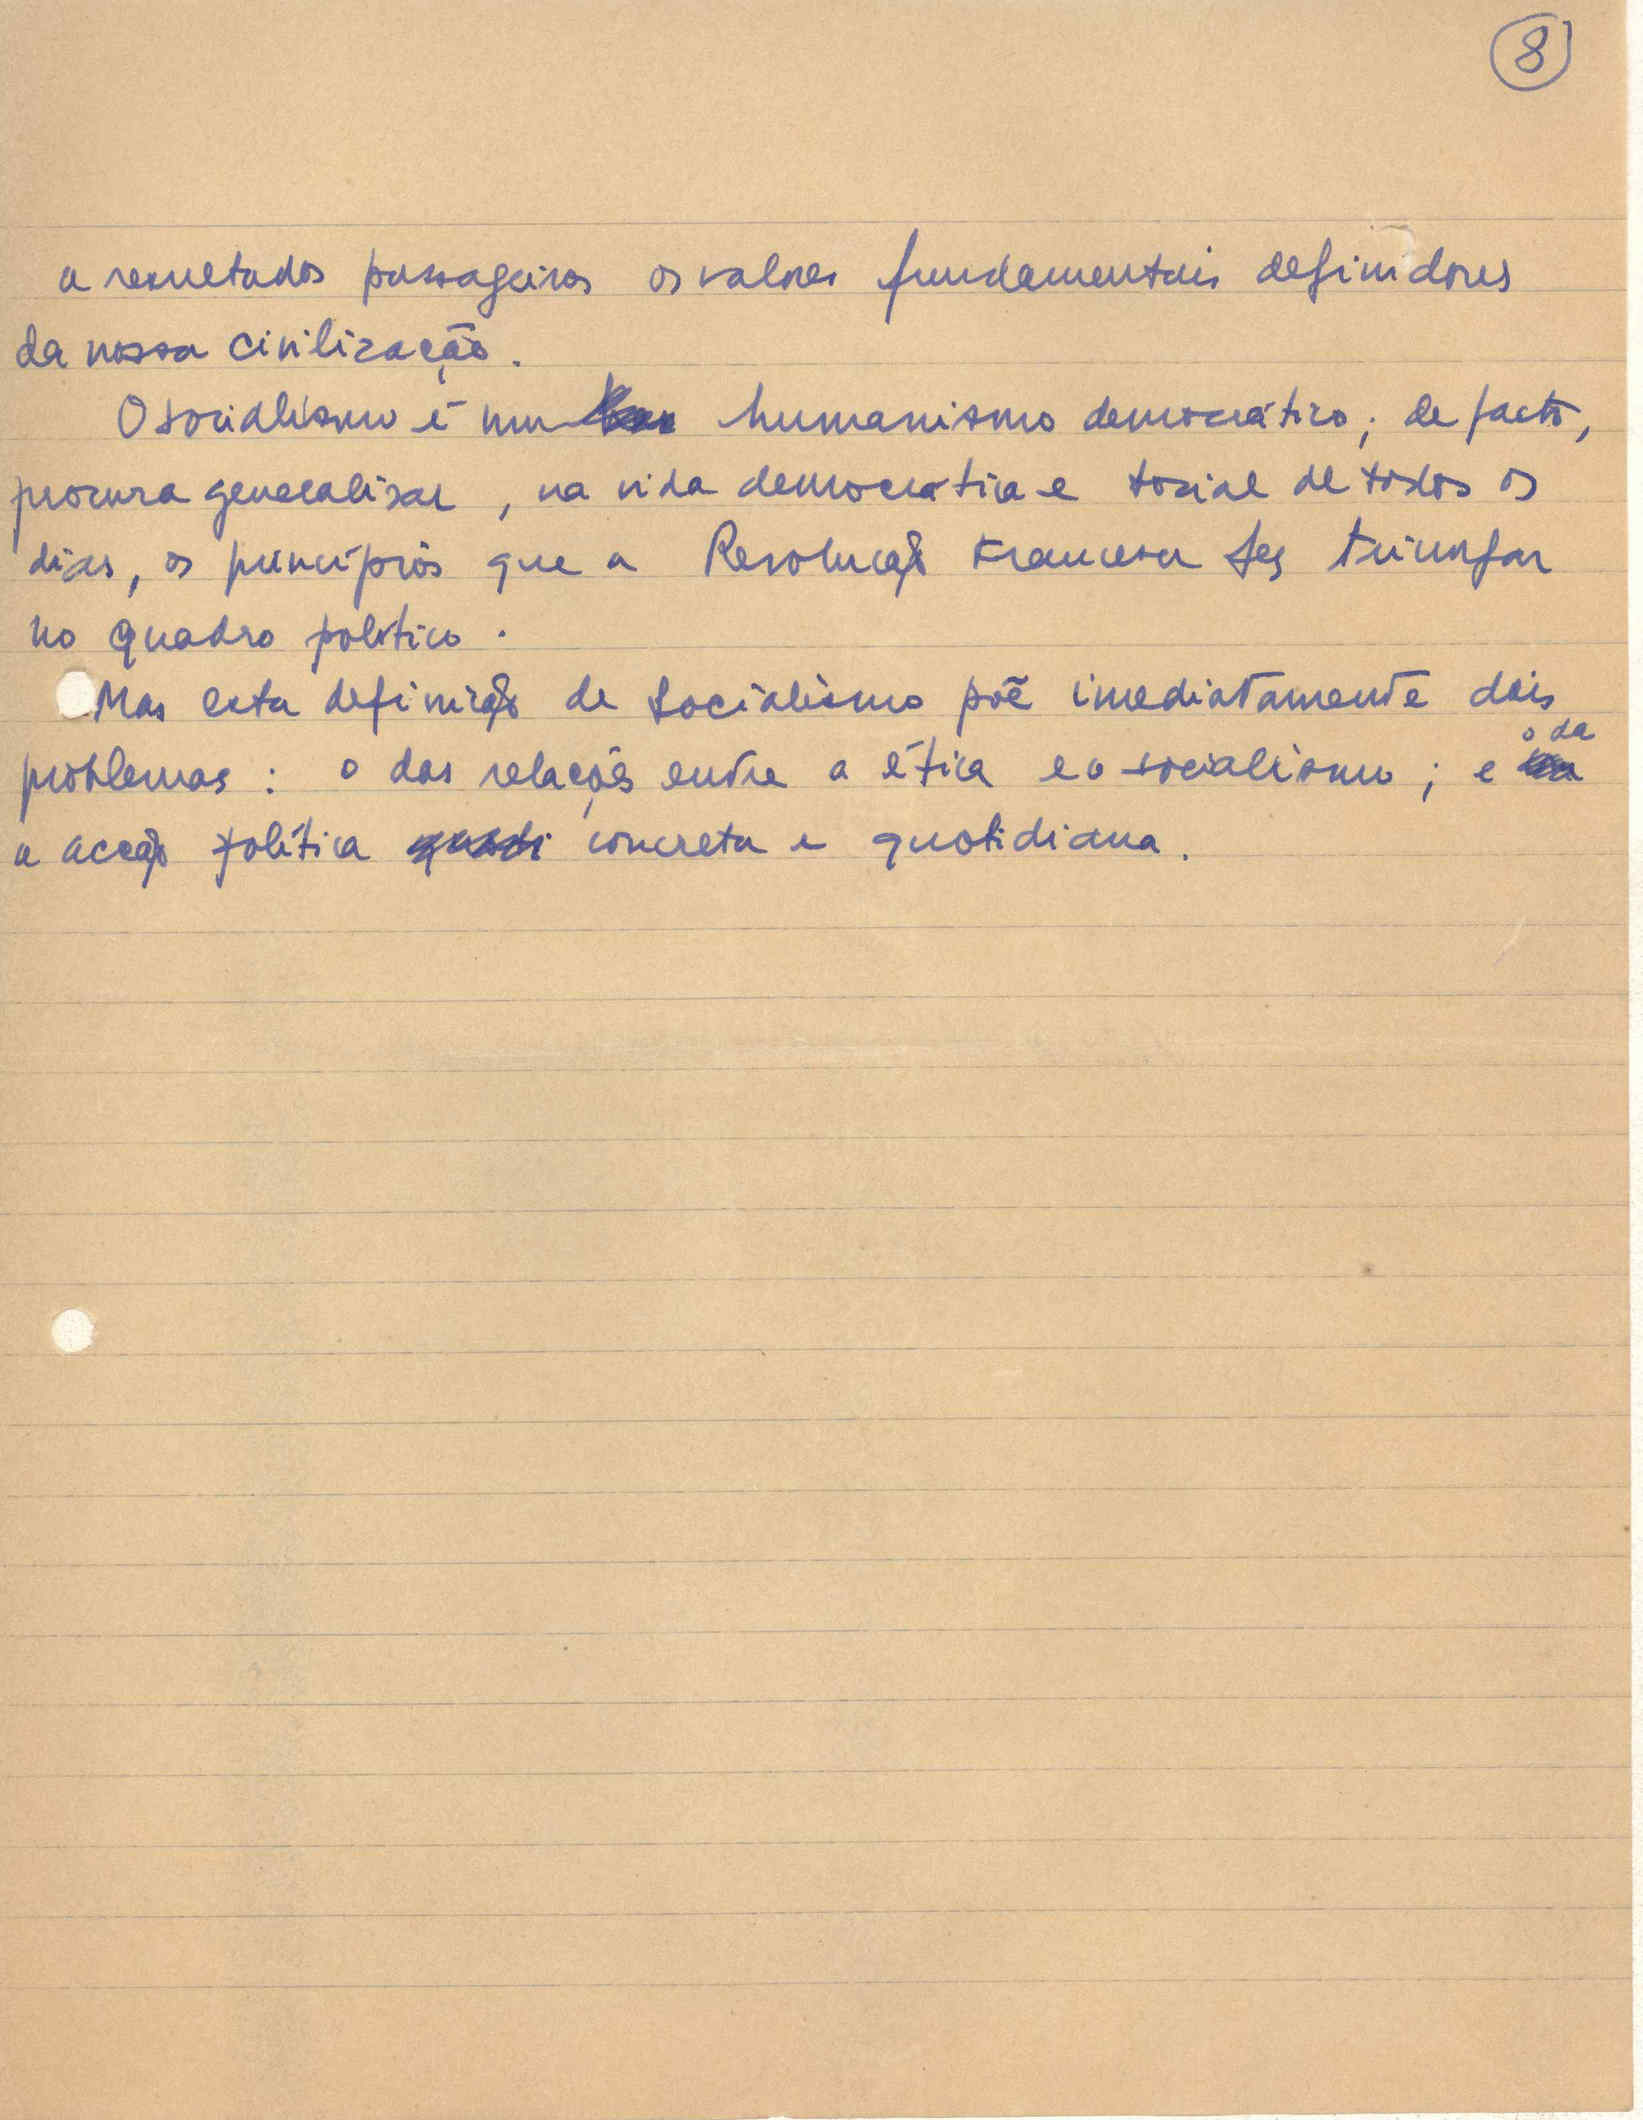 8
a resultados passageiros os valores fundamentais definidores
da nossa civilização.
O socialismo é um humanismo democrático; de facto,
procura generalizar, na vida democrática e social de todos os
dias, os princípios que a Revolução Francesa fez triunfar
no quadro político.
Mas esta definição de socialismo põe imediatamente dois
o da
problemas: o das relações entre a ética e o socialismo; e
a acção política concreta e quotidiana.